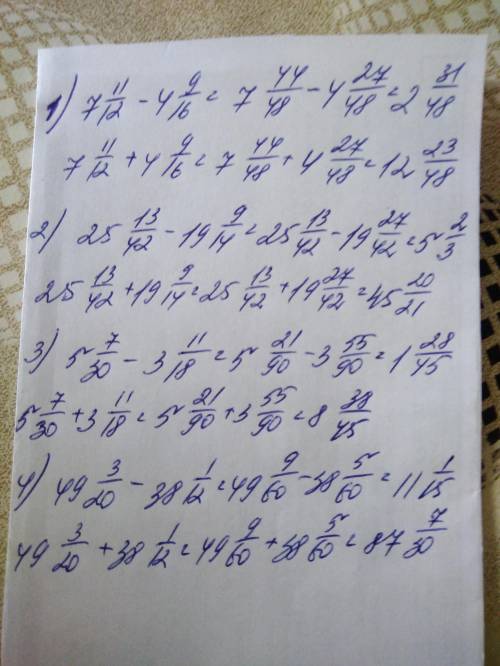 1) 7 11/12 - 4 9/16 = 7 44/48 - 4 27/48 = 2 31/48
7 11/12 + 4 9/16 = 7 44/48 + 4 27/48 = 12 23/48
2) 25 13/42 - 19 9/14 = 25 13/42 - 19 27/42 = 5 2/3
25 13/42 + 19 9/14 = 25 13/42 + 19 27/42 = 45 20/21
3) 5 7/30 - 3 11/18 = 5 21/90 - 3 55/90 = 1 28/45
5 7/30 + 3 11/18 = 5 21/90 + 3 55/90 = 8 38/45
4) 49 3/20 - 38 1/12 = 49 9/60 - 38 5/60 = 11 1/15
49 3/20 + 38 1/12 = 49 9/60 + 38 5/60 = 87 7/30